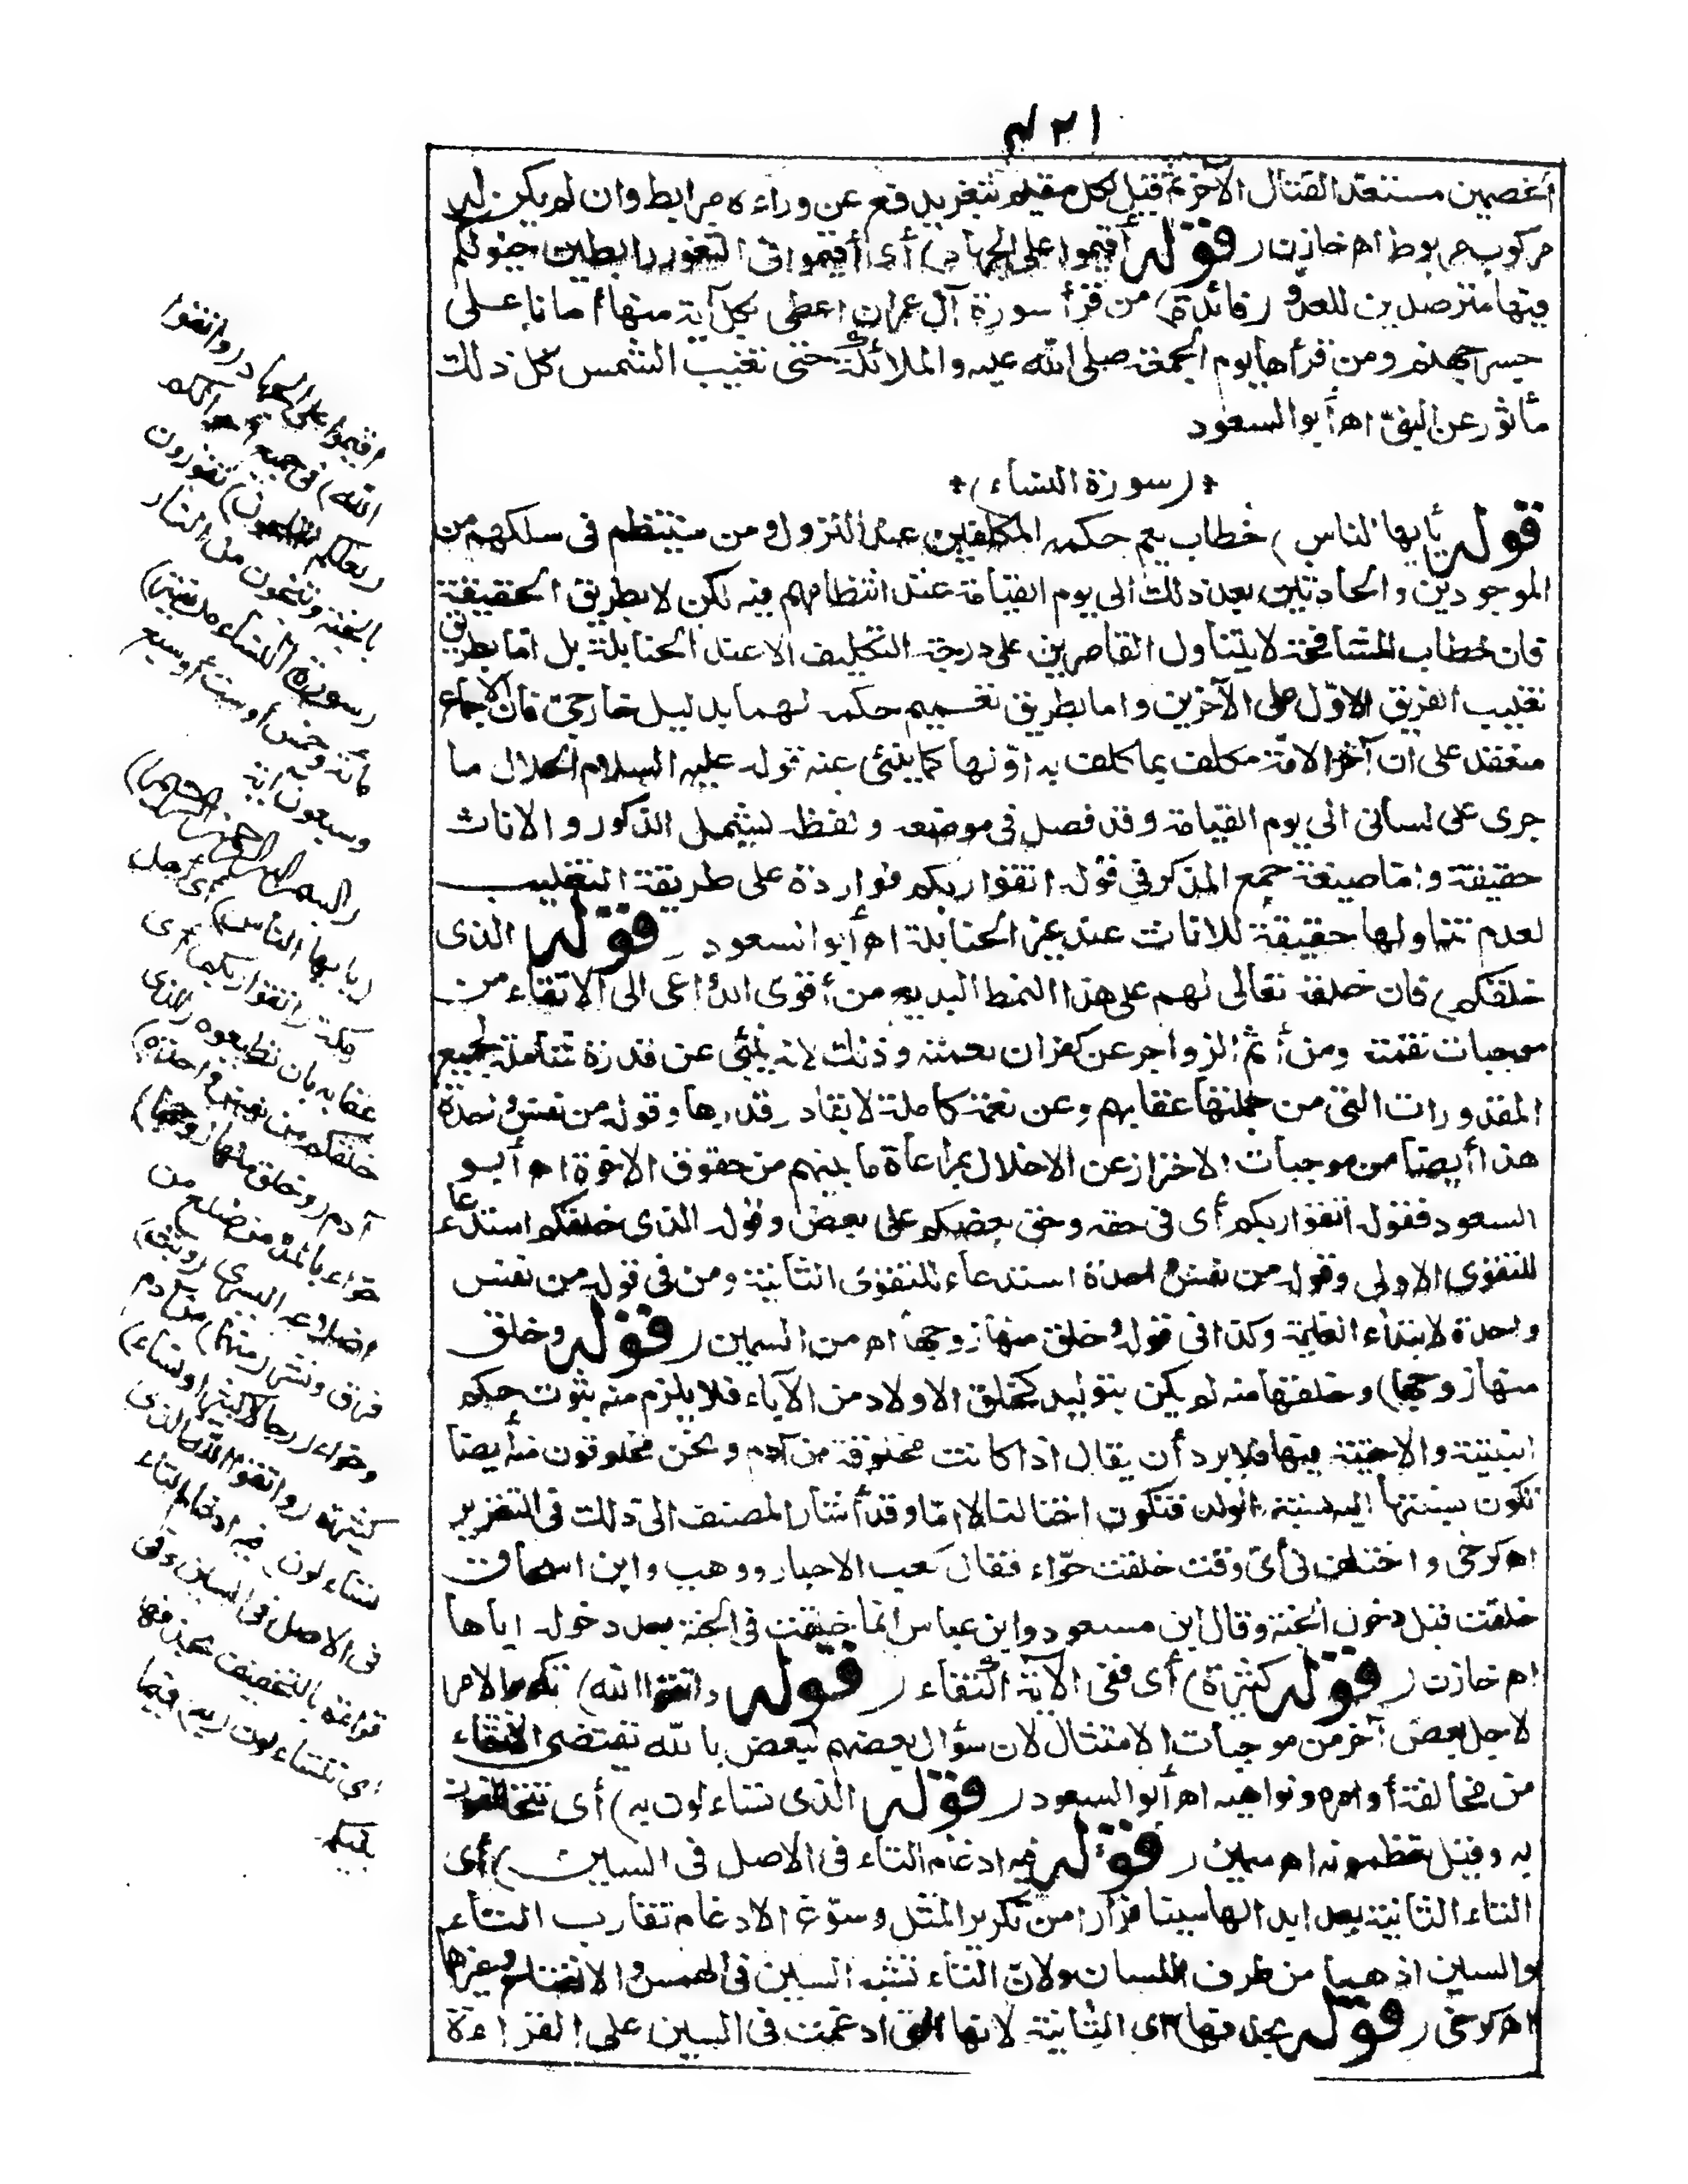 ٤٢١
الخصمين مستعد القتال الآخر ثم قيل لكل مقيم بثغر يدفع عن وراءه مرابط وان لم يكن له
مركوب مربوط اه خازن ( قوله أقيموا على الجهاد ) أى أقيموا فى الثغور رابطين خيولكم
فيها مترصدين للعدو ( فائدة ) من قرأ سورة آل عمران اعطى بكل آية منها أمانا على
جسر جهنم ومن قرأها يوم الجمعة صلى الله عليه والملائكة حتى تغيب الشمس كل ذلك
مأثور عن النبى اه أبو السعود
* ( سورة النساء ) *
قوله يأيها الناس ) خطاب يعم حكمه المكلفين عند النزول ومن سينتظم فى سلكهم من
الموجودين والحادثين بعد ذلك الى يوم القيامة عند انتظامهم فيه لكن لا بطريق الحقيقة
فان خطاب المشافهة لا يتناول القاصرين على درجة التكليف الا عند الحنابلة بل اما بطريق
تغليب الفريق الاول على الآخرين واما بطريق تعميم حكمه لهما بدليل خارجى فان الاجماع
منعقد على ان آخر الامة مكلف بما كلف به اولها كما ينبئ عنه قوله عليه السلام الحلال ما
جرى على لسانى الى يوم القيامة وقد فصل فى موضعه ولفظه يشمل الذكور والاناث
حقيقة واما صيغة جمع المذكر فى قوله اتقوا ربكم فواردة على طريقة التغليب
لعدم تناولها حقيقة للاناث عند غير الحنابلة اه أبو السعود ( قوله الذى
خلقكم ) فان خلقه تعالى لهم على هذا النمط البديع من أقوى الدواعى الى الاتقاء من
موجبات نقمته ومن أتم الزواجر عن كفران نعمته وذلك لانه ينبئ عن قدرة شاملة لجميع
المقدورات التى من جملتها عقابهم وعن نعمة كاملة لا يقادر قدرها وقوله من نفس واحدة
هذا أيضا من موجبات الاحتراز عن الاخلال بمراعاة ما بينهم من حقوق الاخوة اه أبو
السعود فقوله اتقوا ربكم أى فى حقه وحق بعضكم على بعض وقوله الذى خلقكم استدعاء
للتقوى الاولى وقوله من نفس واحدة استدعاء للتقوى الثانية ومن فى قوله من نفس
واحدة لابتداء الغاية وكذا فى قوله وخلق منها زوجها اه من السمين ( قوله وخلق
منها زوجها ) وخلقها منه لم يكن بتوليد كخلق الاولاد من الآباء فلا يلزم منه ثبوت حكم
البنتية والاختية فيها فلا يرد أن يقال اذا كانت مخلوقة من آدم ونحن مخلوقون منه أيضا
تكون نسبتها اليه نسبة الولد فتكون اختا لنا لا امّا وقد أشار المصنف الى ذلك فى التقرير
اه كرخى واختلف فى أى وقت خلقت حوّاء فقال كعب الاحبار ووهب وابن اسحاق
خلقت قبل دخول الجنة وقال ابن مسعود وابن عباس انما خلقت فى الجنة بعد دخوله اياها
اه خازن ( قوله كثيرة ) أى ففى الآية اكتفاء ( قوله واتقوا الله ) تكرير الامر
لاجل بعض آخر من موجبات الامتثال لان سؤال بعضهم لبعض بالله يقتضى الاتقاء
من مخالفة أوامره ونواهيه اه أبو السعود ( قوله الذى تساءلون به ) أى تتحالفون
به وقيل تعظمونه اه سمين ( قوله فيه ادغام التاء فى الاصل فى السين ) أى
التاء الثانية بعد ابدالها سينا فرارا من تكرير المثل وسوّغ الادغام تقارب التاء
والسين اذ هما من طرف اللسان ولان التاء تشبه السين فى الهمس والانفتاح وغيرها
اه كرخى ( قوله بحذفها ) أى الثانية لانها التى ادغمت فى السين على القراءة
اقيموا على الجهاد ( واتقوا
الله ) فى جميع أحوالكم
( لعلكم تفلحون ) تفوزون
بالجنة وتنجون من النار
( سورة النساء مدنية )
مائة وخمس أو ست أو سبع
وسبعون آية
( بسم الله الرحمن الرحيم )
( يا أيها الناس ) أى أهل
مكة ( اتقوا ربكم ) أى
عقابه بان تطيعوه ( الذى
خلقكم من نفس واحدة )
آدم ( وخلق منها زوجها )
حوّاء بالمدّ من ضلع من
اضلاعه اليسرى ( وبث )
فرق ونشر ( منهما ) من آدم
وحوّاء ( رجالا كثيرا ونساء )
كثيرة ( واتقوا الله الذى
تساءلون ) فيه ادغام التاء
فى الاصل فى السين وفى
قراءة بالتخفيف بحذفها
أى تتساءلون ( به ) فيما
بينكم